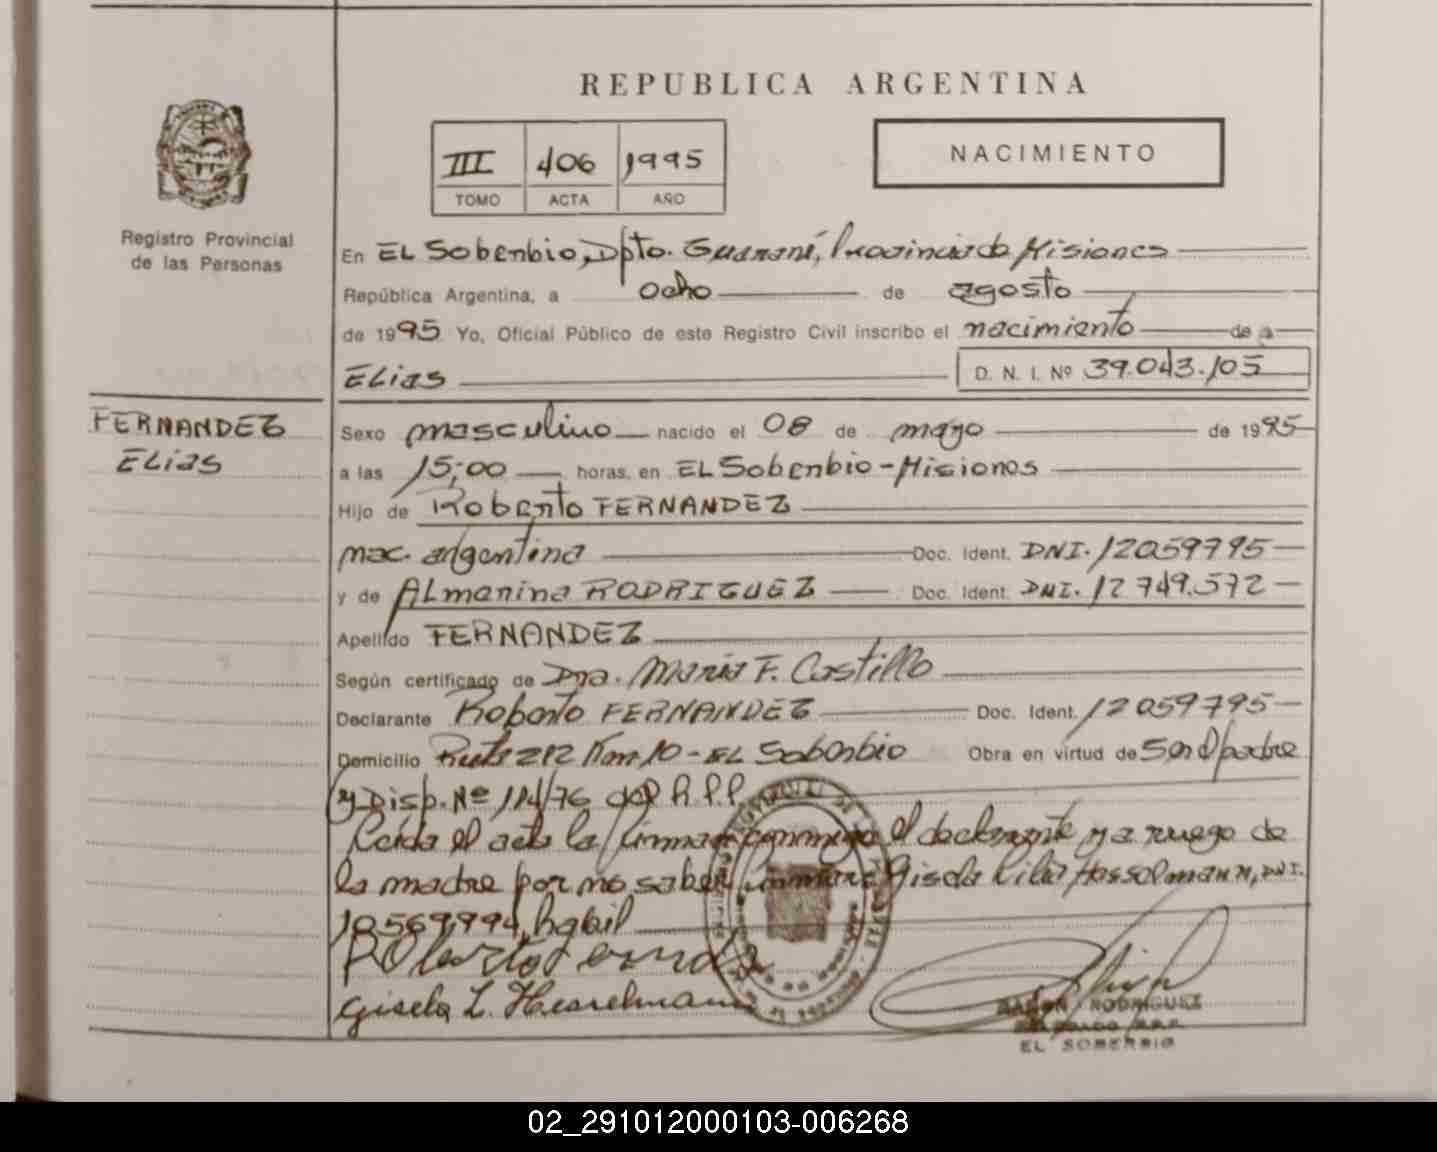 REPUBLICA ARGENTINA
III 406 1995
TOMO ACTA AÑO
NACIMIENTO
Registro Provincial
de las Personas
En EL Soberbio, Dpto. Guaraní, Provincia de Misiones
República Argentina, a ocho de agosto
de 1995 Yo, Oficial Público de este Registro Civil inscribo el nacimiento de
ELias D. N. I. Nº 39.043.105
FERNANDEZ
ELias
Sexo masculino nacido el 08 de mayo de 1995
a las 15;00 horas, en EL Soberbio - Misiones
Hijo de Roberto FERNANDEZ
nac. argentina Doc. Ident. DNI. 12059795
y de ALmarina RODRIGUEZ Doc. Ident. DNI. 12749.572
Apellido FERNANDEZ
Según certificado de Dra. Maria F. Castillo
Declarante Roberto FERNANDEZ Doc. Ident. 12059795
Domicilio Ruta 212 Km 10 - EL Soberbio Obra en virtud de Ser el padre
y Disp. Nº 114/76 del R.P.P.
Leida el acta la firman conmigo el declarante y a ruego de
la madre por no saber firmar Gisela Lilia Hesselmann, DNI.
10569994, hábil
Gisela L. Hesselmann
RAMON RODRIGUEZ
EL SOBERBIO
02_291012000103-006268